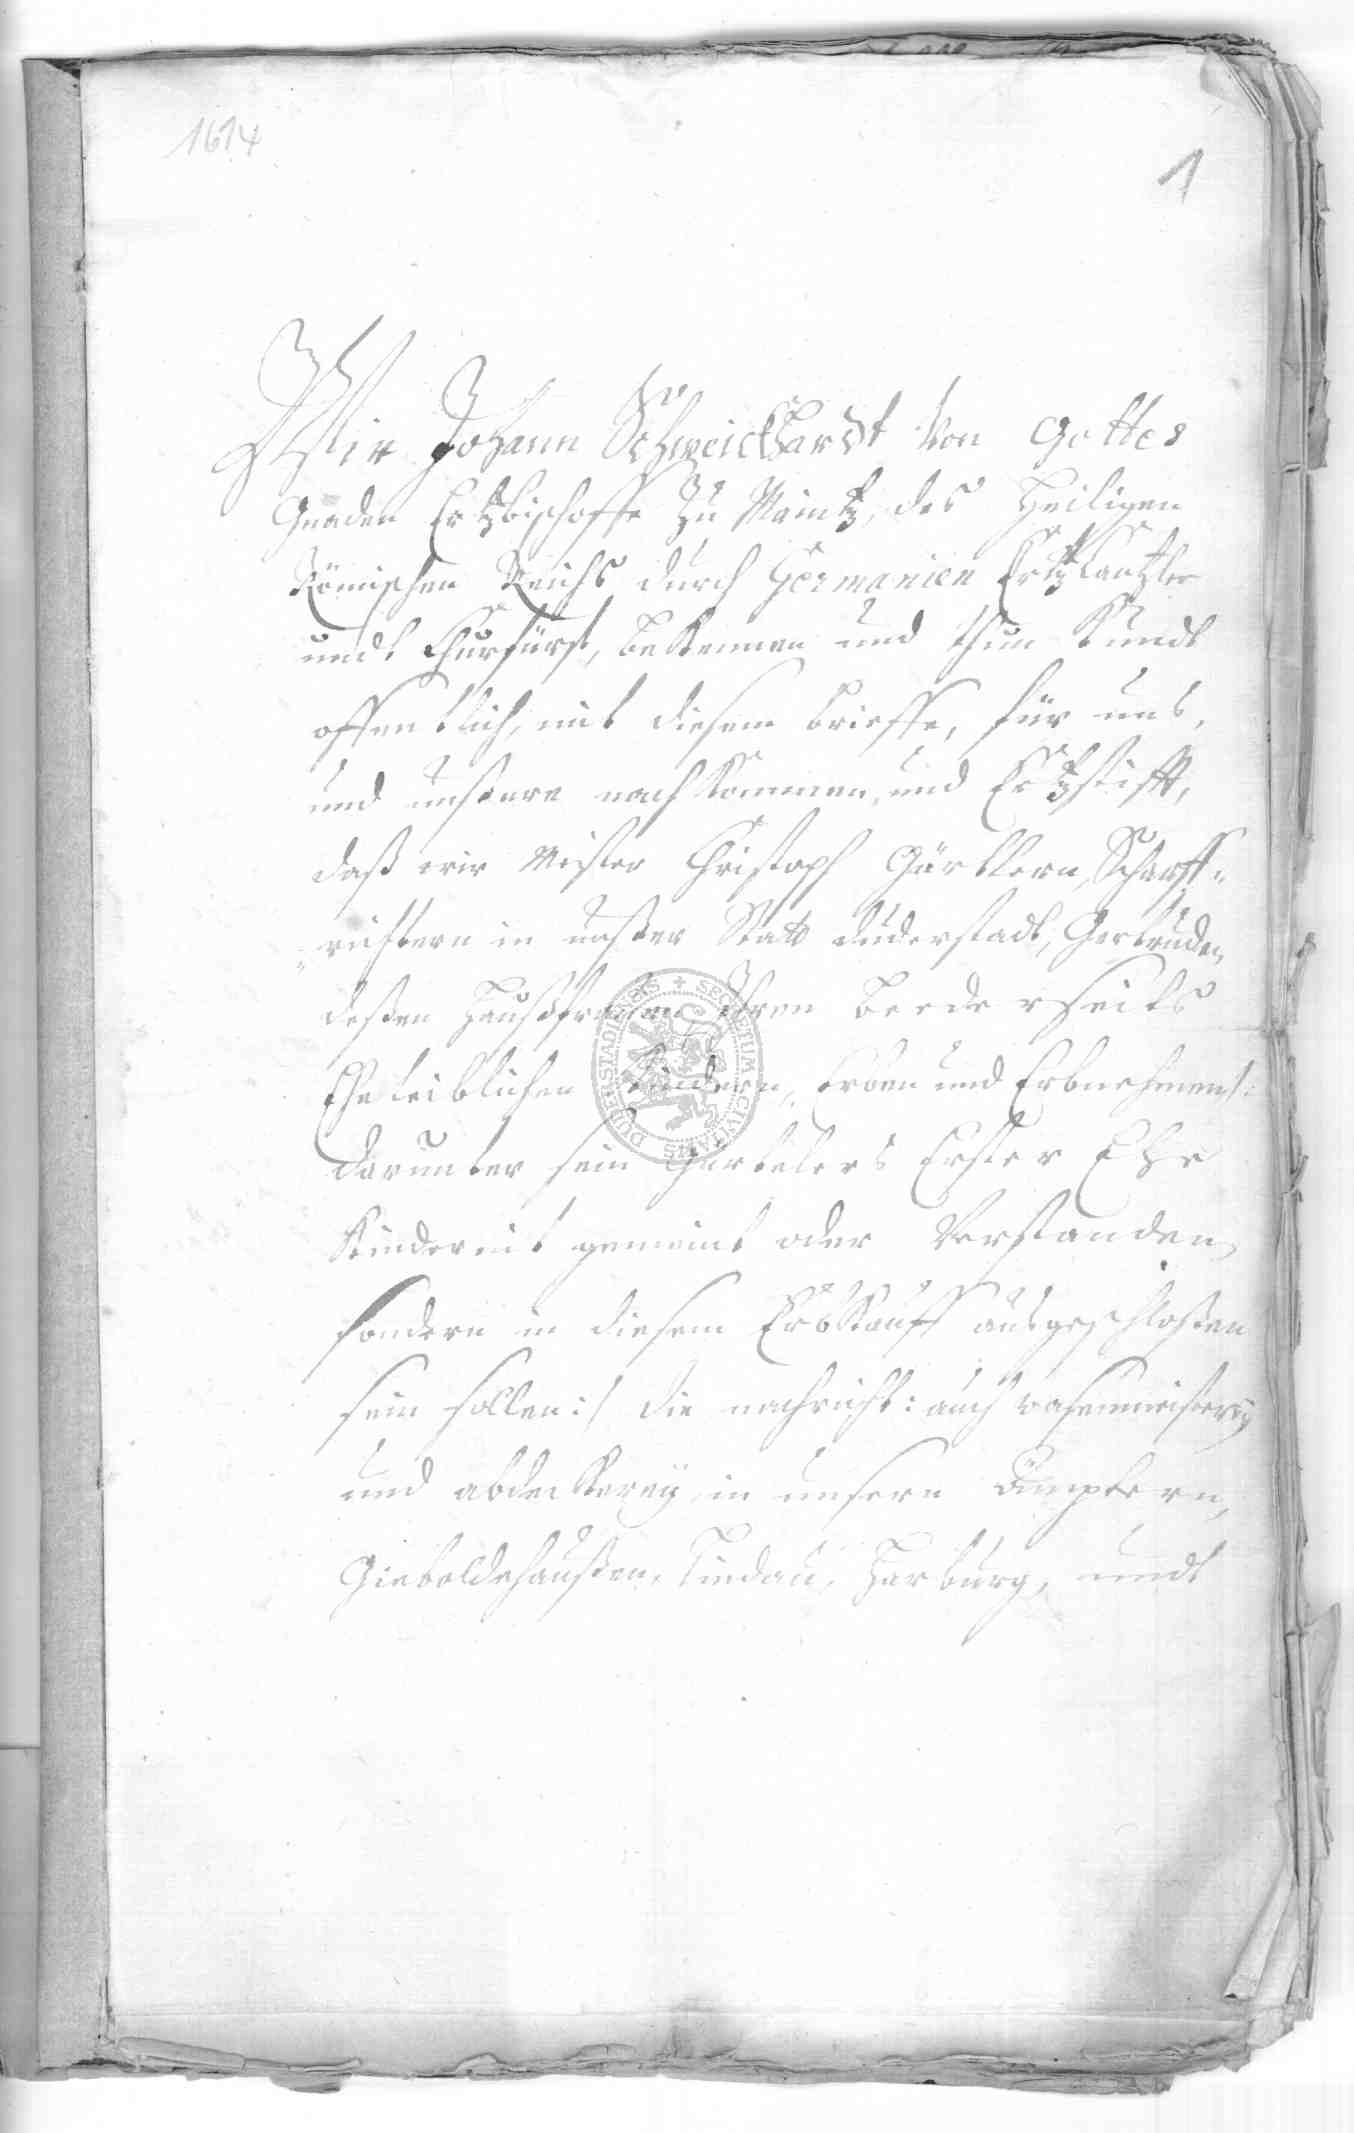 1614
1
Wir Johann Schweickhardt von Gottes
Gnaden Ertzbischoffe Zu Maintz, des Heiligen
Römischen Reichs durch Germanien Ertz Cantzler
undt Churfürst, bekennen und thun kundt
offentlich, mit diesem brieffe, für uns,
und unßere nachkommen, und Ertzstifft,
daß wir Meister Christoph Gärtlern, Scharff-
richtern in unßer Statt duderstadt, Gertruden
deßen Haußfrauen Ihren beederseits
Eheleiblichen Kindern, Erben und Erbnehmen/:
darunter sein Gärtelers Erster Ehe
Kinder nit gemeint oder Verstanden
sondern in diesem Erbkauff ausgeschloßen
sein sollen:/ die nachricht: auch wasenmeisterey
und abdeckerey in unsern Ämptern,
Gieboldehaußen, Lindau, Harburg, undt
DUDERSTADIENSIS + SECRETUM CIVITATIS